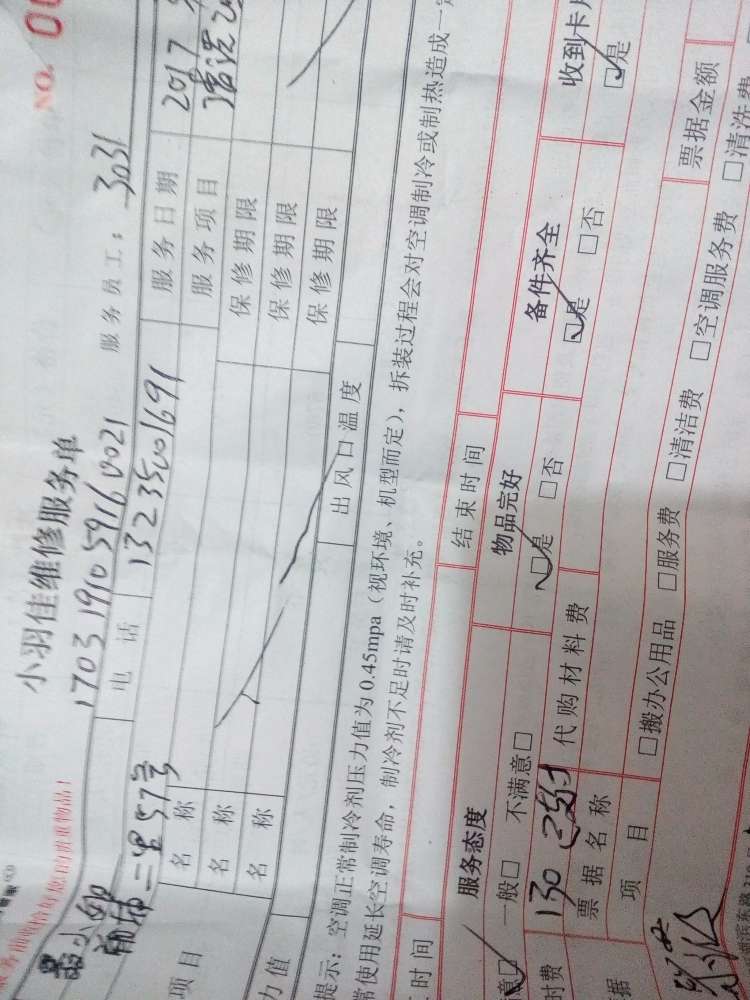 小羽佳维修服务单
NO. 00
1703191059160021
服务员工：3031
电话 13235001691
服务日期 2017
名称 服务项目 清洗
名称 保修期限
名称 保修期限
保修期限
项目
力值 出风口温度
提示：空调正常制冷剂压力值为0.45mpa（视环境、机型而定），拆装过程会对空调制冷或制热造成一定
常使用延长空调寿命，制冷剂不足时请及时补充。
时间 结束时间
服务态度 物品完好 备件齐全 收到卡片
意☑ 一般□ 不满意□ ☑是 □否 ☑是 □否 ☑是
付费 130 代购材料费
据 票据名称 票据金额
项目 □搬办公用品 □服务费 □清洁费 □空调服务费 □清洗费